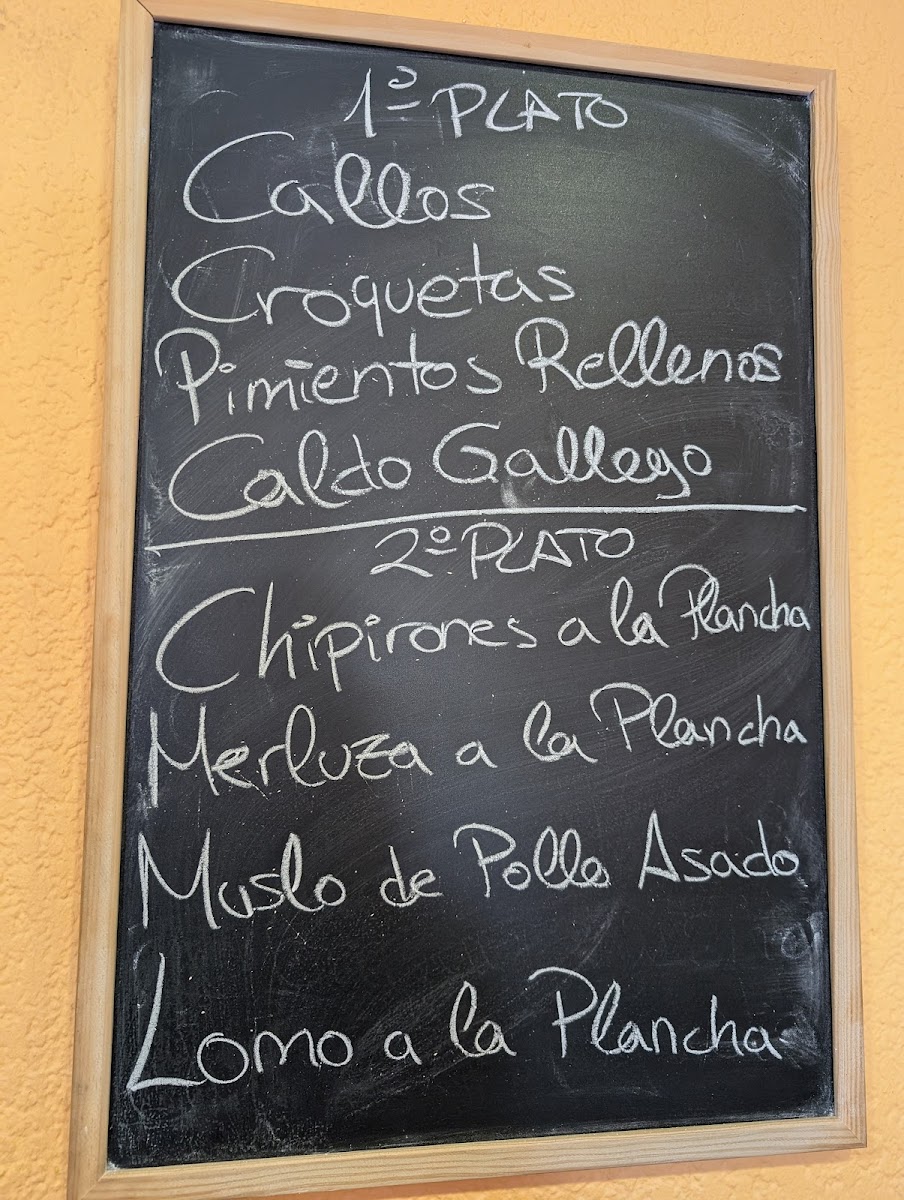 1º PLATO
Callos
Croquetas
Pimientos Rellenos
Caldo Gallego
2º PLATO
Chipirones a la Plancha
Merluza a la Plancha
Muslo de Pollo Asado
Lomo a la Plancha